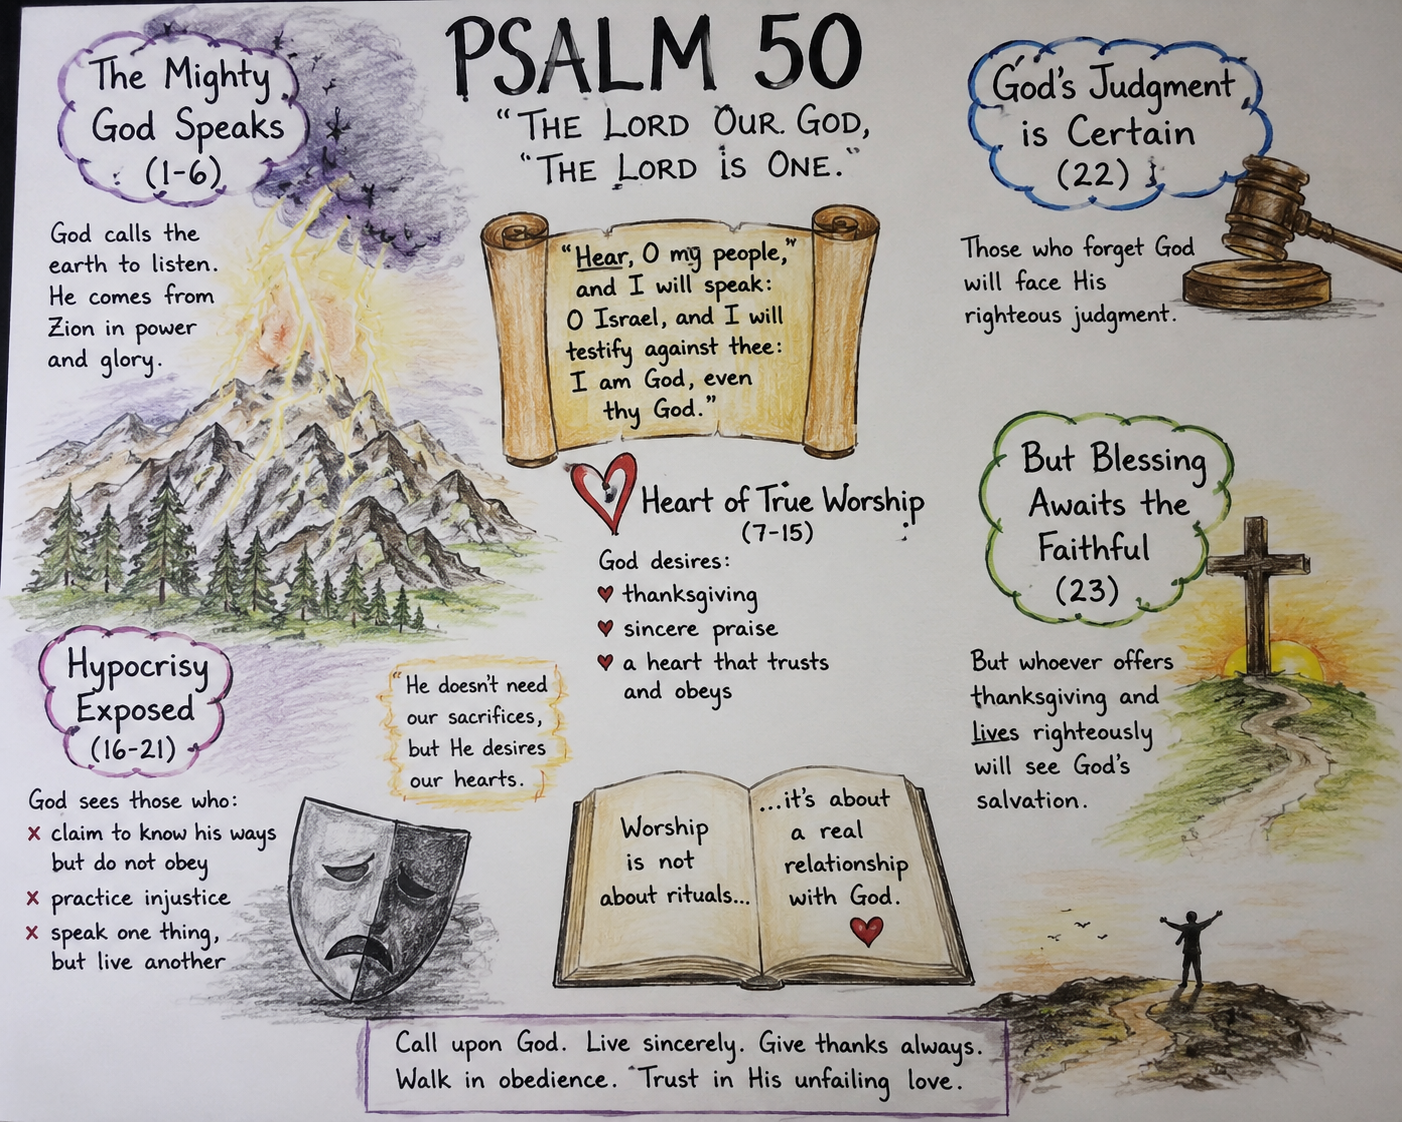 PSALM 50
"THE LORD OUR. GOD,
"THE LORD is ONE."
The Mighty
God Speaks
(1-6)
God calls the
earth to listen.
He comes from
Zion in power
and glory.
"Hear, O my people,"
and I will speak:
O Israel, and I will
testify against thee:
I am God, even
thy God."
Heart of True Worship
(7-15)
God desires:
thanksgiving
sincere praise
a heart that trusts
and obeys
Hypocrisy
Exposed
(16-21)
God sees those who:
x claim to know his ways
but do not obey
x practice injustice
x speak one thing,
but live another
"He doesn't need
our sacrifices,
but He desires
our hearts.
Worship
is not
about rituals...
...it's about
a real
relationship
with God.
God's Judgment
is Certain
(22)
Those who forget God
will face His
righteous judgment.
But Blessing
Awaits the
Faithful
(23)
But whoever offers
thanksgiving and
lives righteously
will see God's
salvation.
Call upon God. Live sincerely. Give thanks always.
Walk in obedience. Trust in His unfailing love.